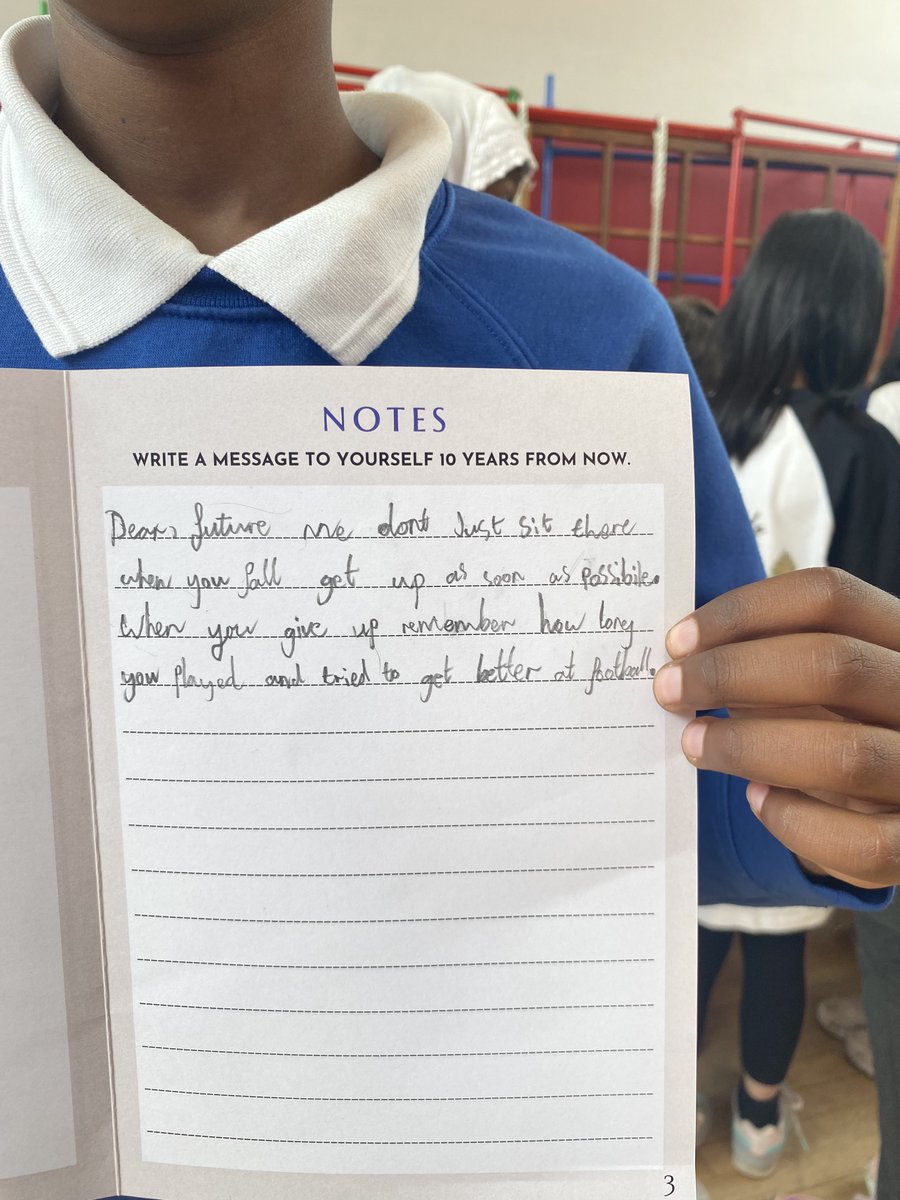 NOTES
WRITE A MESSAGE TO YOURSELF 10 YEARS FROM NOW.
Dear, future me dont Just sit there
when you fall get up as soon as possibile.
When you give up remember how long
you played and tried to get better at football.
3